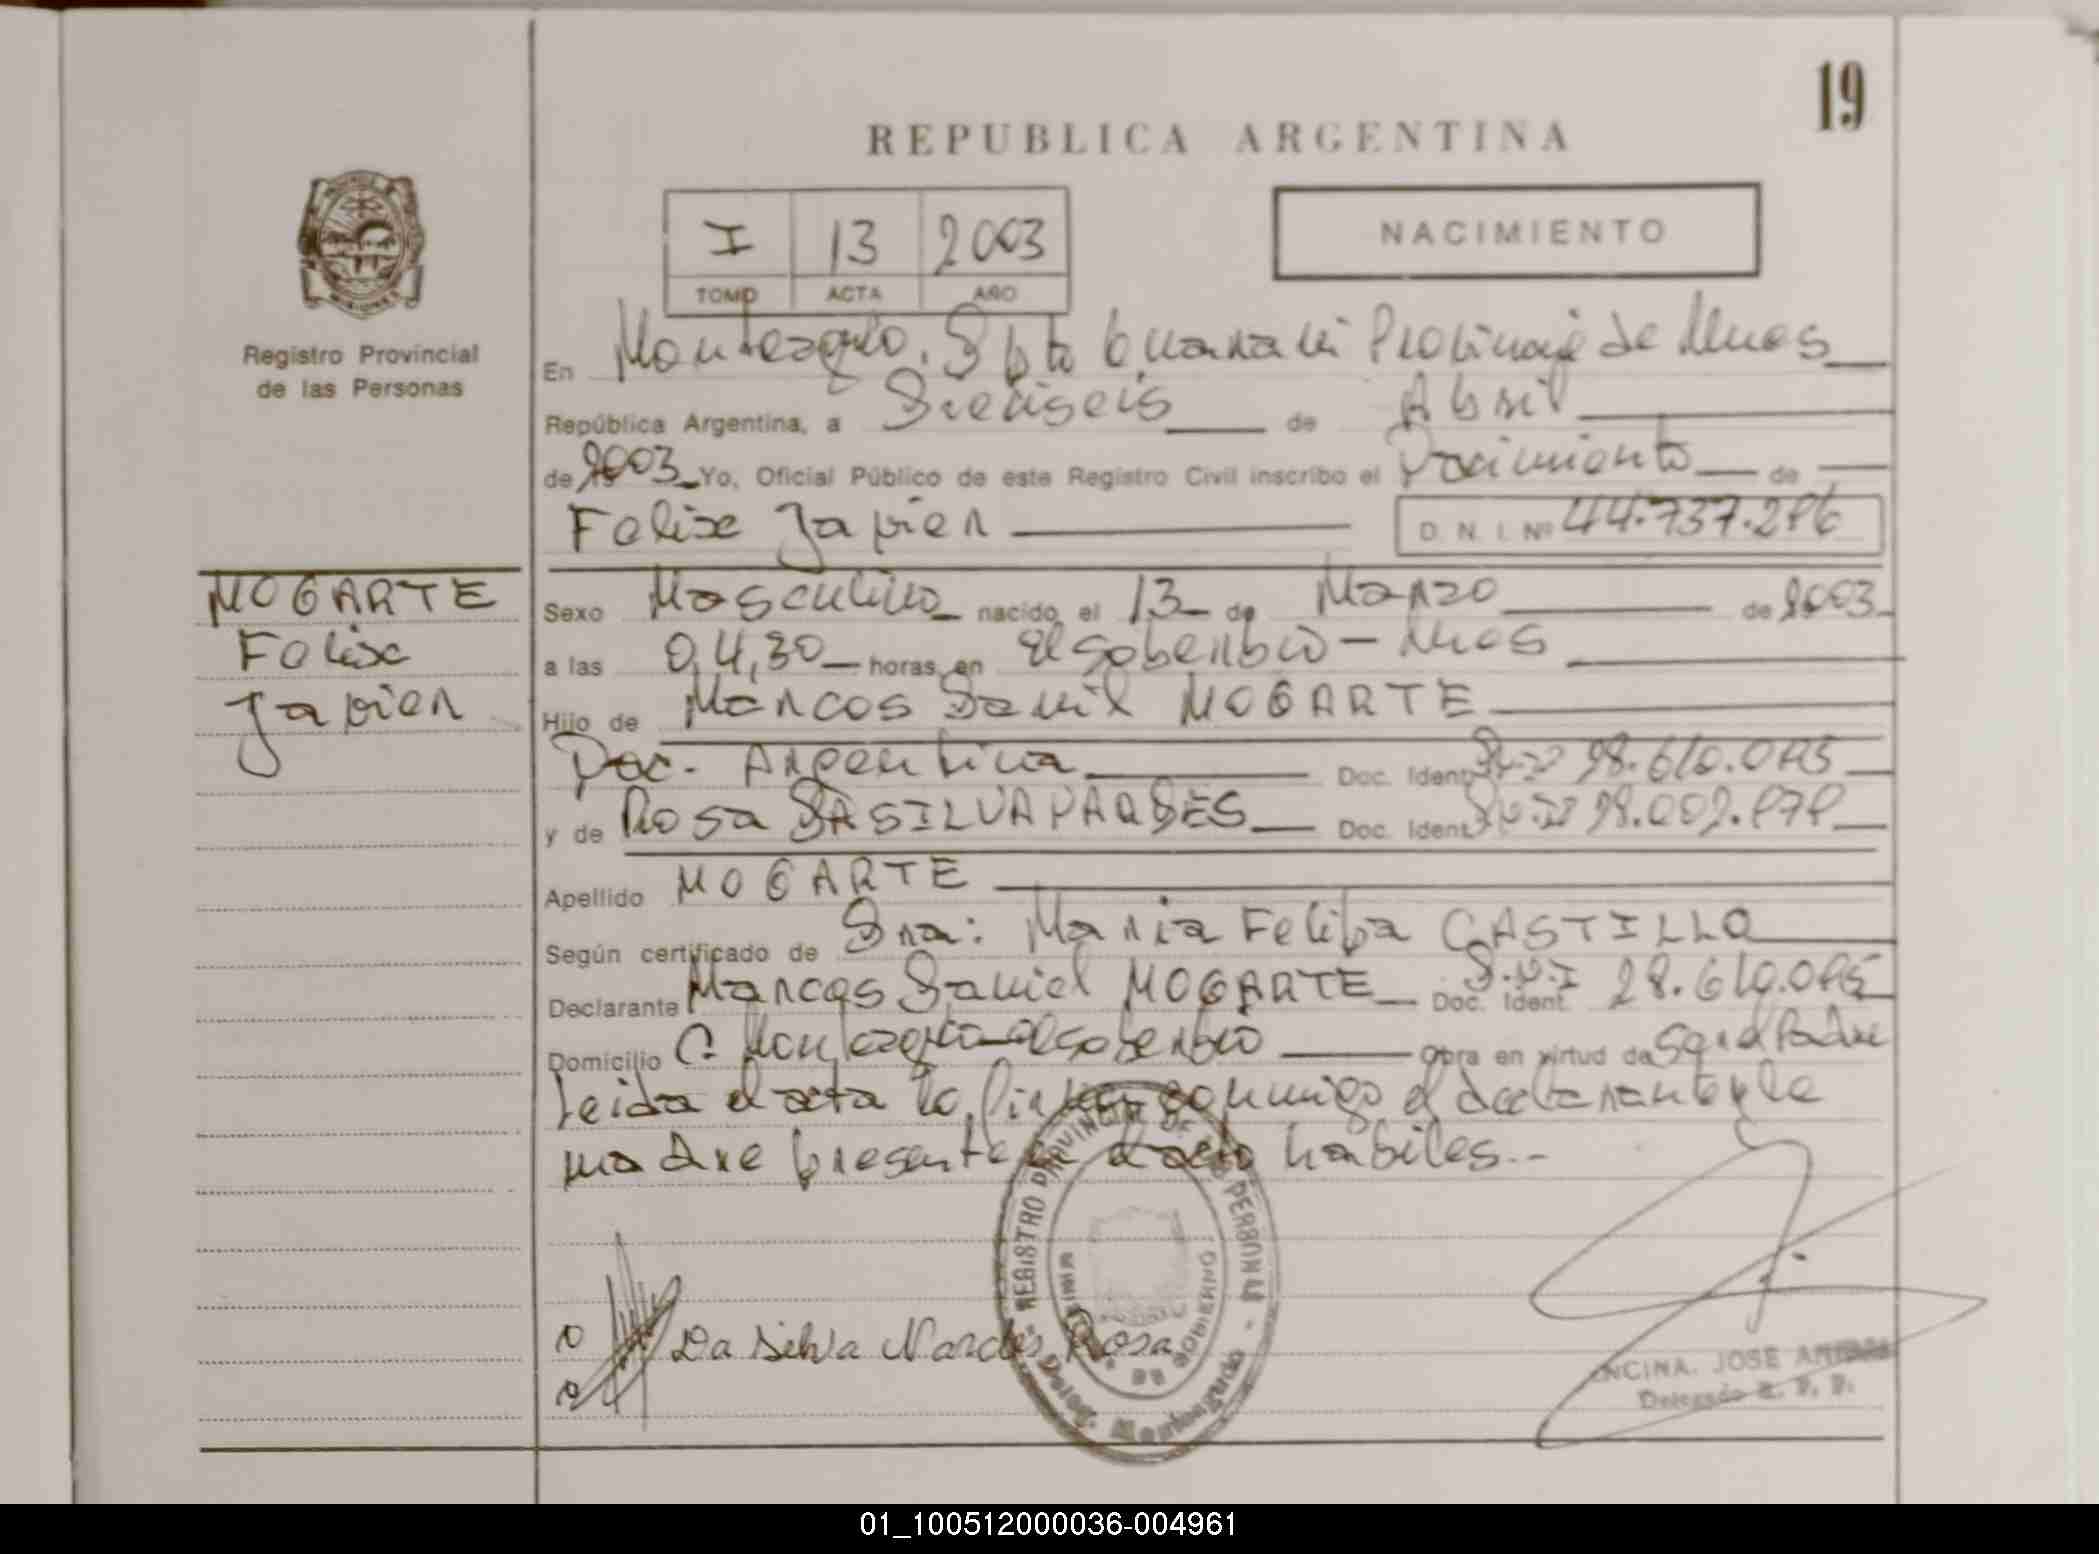 19
REPUBLICA ARGENTINA
I 13 2003
TOMO ACTA AÑO
NACIMIENTO
Registro Provincial
de las Personas
En Monteagudo, Dpto Guarani Provincia de Mnes
República Argentina, a Dieciseis de Abril
de 2003 Yo, Oficial Público de este Registro Civil inscribo el Nacimiento de
Felix Javier D. N. I. Nº 44.737.286
MOGARTE
Felix
Javier
Sexo Masculino nacido el 13 de Marzo de 2003
a las 04,30 horas, en El Soberbio - Mnes
Hijo de Marcos Daniel MOGARTE
Nac. Argentina Doc. Ident. D.N.I 28.610.085
y de Rosa DASILVA NARDES Doc. Ident. D.N.I 28.002.878
Apellido MOGARTE
Según certificado de Sra: Maria Felipa CASTILLO
Declarante Marcos Daniel MOGARTE Doc. Ident. D.N.I 28.610.085
Domicilio C. Monteagudo El Soberbio Obra en virtud de Padre
Leida el acta la firman conmigo el declarante y la
madre presente acto habiles.-
REGISTRO PROVINCIAL DE LAS PERSONAS
MINISTERIO DE GOBIERNO
Deleg. Monteagudo
Da Silva Nardes Rosa
ENCINA. JOSE
Delegado R. P. P.
01_100512000036-004961